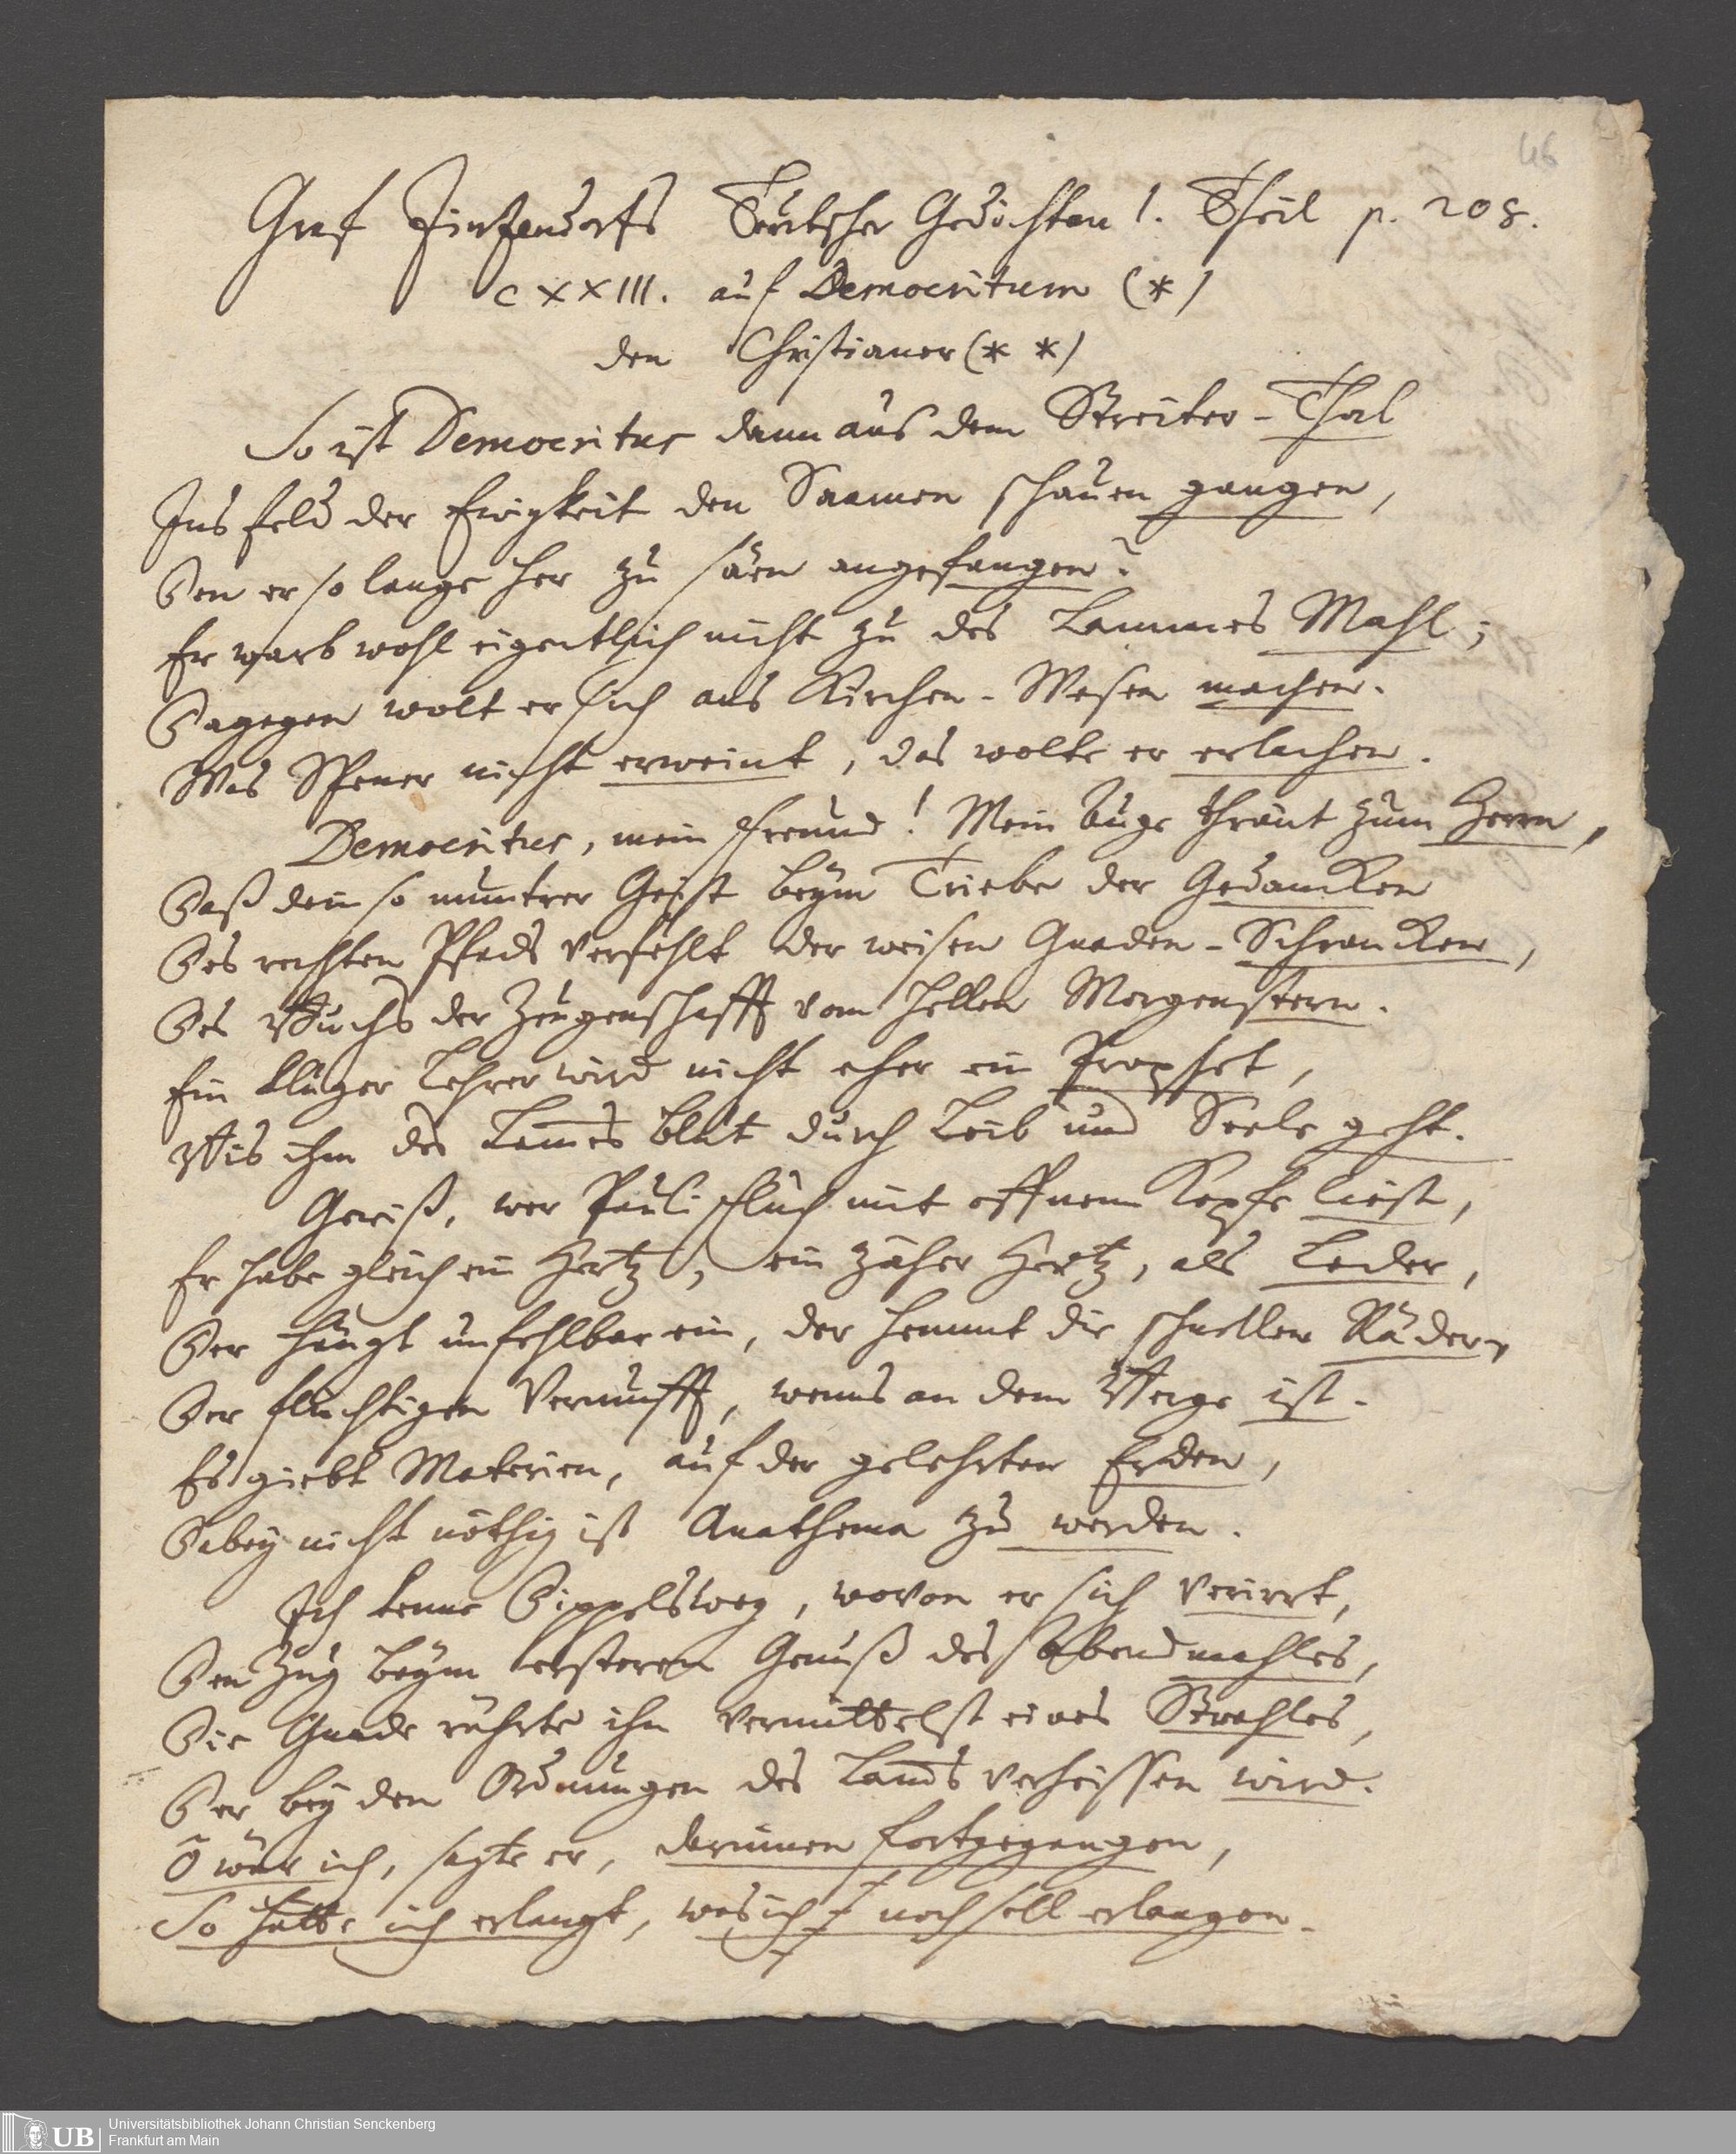 46
Graf Zinzendorfs Teutscher Gedichten 1. Theil p. 208.
CXXIII. auf Democritum (*)
den Christianer (* *)
So ist Democritus dann aus dem Streiter-Thal
Ins Feld der Ewigkeit den Saamen schauen gangen,
Den er so lange her zu säen angefangen?
Er warb wohl eigentlich nicht zu des Lammes Mahl;
Dagegen wolt er sich ans Kirchen-Wesen machen.
Was Spener nicht erweint, das wolte er erlachen.
Democritus, mein Freund! Mein Auge thränt zum Herrn,
Daß dein so muntrer Geist beym Triebe der Gedancken
Des rechten Pfads verfehlt der weisen Gnaden-Schrancken,
Des Wuchs der Zeugenschafft vom hellen Morgenstern.
Ein kluger Lehrer wird nicht eher ein Prophet,
Bis ihm des Lam̄es Blut durch Leib und Seele geht.
Gewiß, wer Pauli Fluch mit offnem Kopfe liest,
Er habe gleich ein Hertz, ein zäher Hertz, als Leder,
Der hängt unfehlbar ein, der hemmt die schnellen Räder,
Der flüchtigen Vernunfft, wenns an dem Berge ist.
Es giebt Materien, auf der gelehrten Erden,
Dabey nicht nöthig ist Anathema zu werden.
Ich kenne Dippels Weg, wovon er sich verirrt,
Den Zug beym ersteren Genuß des Abendmahles,
Die Gnade rührte ihn vermittelst eines Strahles,
Der bey den Ordnungen des Lam̄s verheissen wird.
O wär ich, sagte er, darinnen fortgegangen,
So hätte ich erlangt, was ich noch soll erlangen.
UB
Universitätsbibliothek Johann Christian Senckenberg
Frankfurt am Main